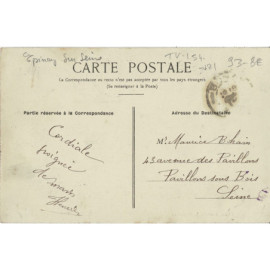 Epinay sur Seine
93-88
CARTE POSTALE
La Correspondance au recto n'est pas acceptée par tous les pays étrangers
(Se renseigner à la Poste)
Partie réservée à la Correspondance
Adresse du Destinataire
Cordiale
poignée
de main
Mr Maurice
43 avenue des Pavillons
Pavillons sous Bois
Seine